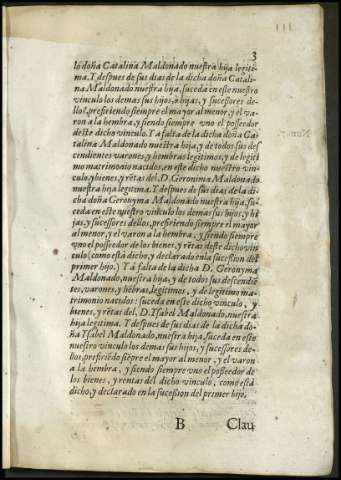 3
la doña Catalina Maldonado nuestra hija legiti-
ma. Y despues de sus dias de la dicha doña Catali-
na Maldonado nuestra hija, suceda en este nuestro
vinculo los demas sus hijos, ò hijas, y sucessores de-
llos, prefiriendo siempre el mayor al menor, y el va-
ron a la hembra, y siendo siempre vno el posseedor
deste dicho vinculo. Y a falta de la dicha doña Ca-
talina Maldonado nuestra hija, y de todos sus des
cendientes varones, y hembras legitimos, y de legiti
mo matrimonio nacidos, en este dicho nuestro vin-
culo, y bienes, y rẽtas del, D. Geronima Maldonado
nuestra hija legitima. Y despues de sus dias de la di-
cha doña Geronyma Maldonado nuestra hija, su-
ceda en este nuestro vinculo los demas sus hijos, y hi
jas, y sucessores dellos, prefiriendo siempre el mayor
al menor, y el varon a la hembra, y siendo siempre
vno el posseedor de los bienes, y rẽtas deste dicho vin-
culo (como està dicho, y declarado en la sucessiõ del
primer hijo.) Y à falta de la dicha D. Geronyma
Maldonado, nuestra hija, y de todos sus descendiẽ-
tes, varones, y hẽbras, legitimos, y de legitimo ma-
trimonio nacidos: suceda en este dicho vinculo, y
bienes, y rẽtas del, D. Ysabel Maldonado, nuestra
hija legitima. Y despues de sus dias de la dicha do-
ña Ysabel Maldonado, nuestra hija, suceda en este
nuestro vinculo los demas sus hijos, y sucessores de-
llos, prefiriẽdo siẽpre el mayor al menor, y el varon
a la hembra, y siendo siempre vno el posseedor de
los bienes, y rentas del dicho vinculo, como està
dicho, y declarado en la sucession del primer hijo.
B Clau